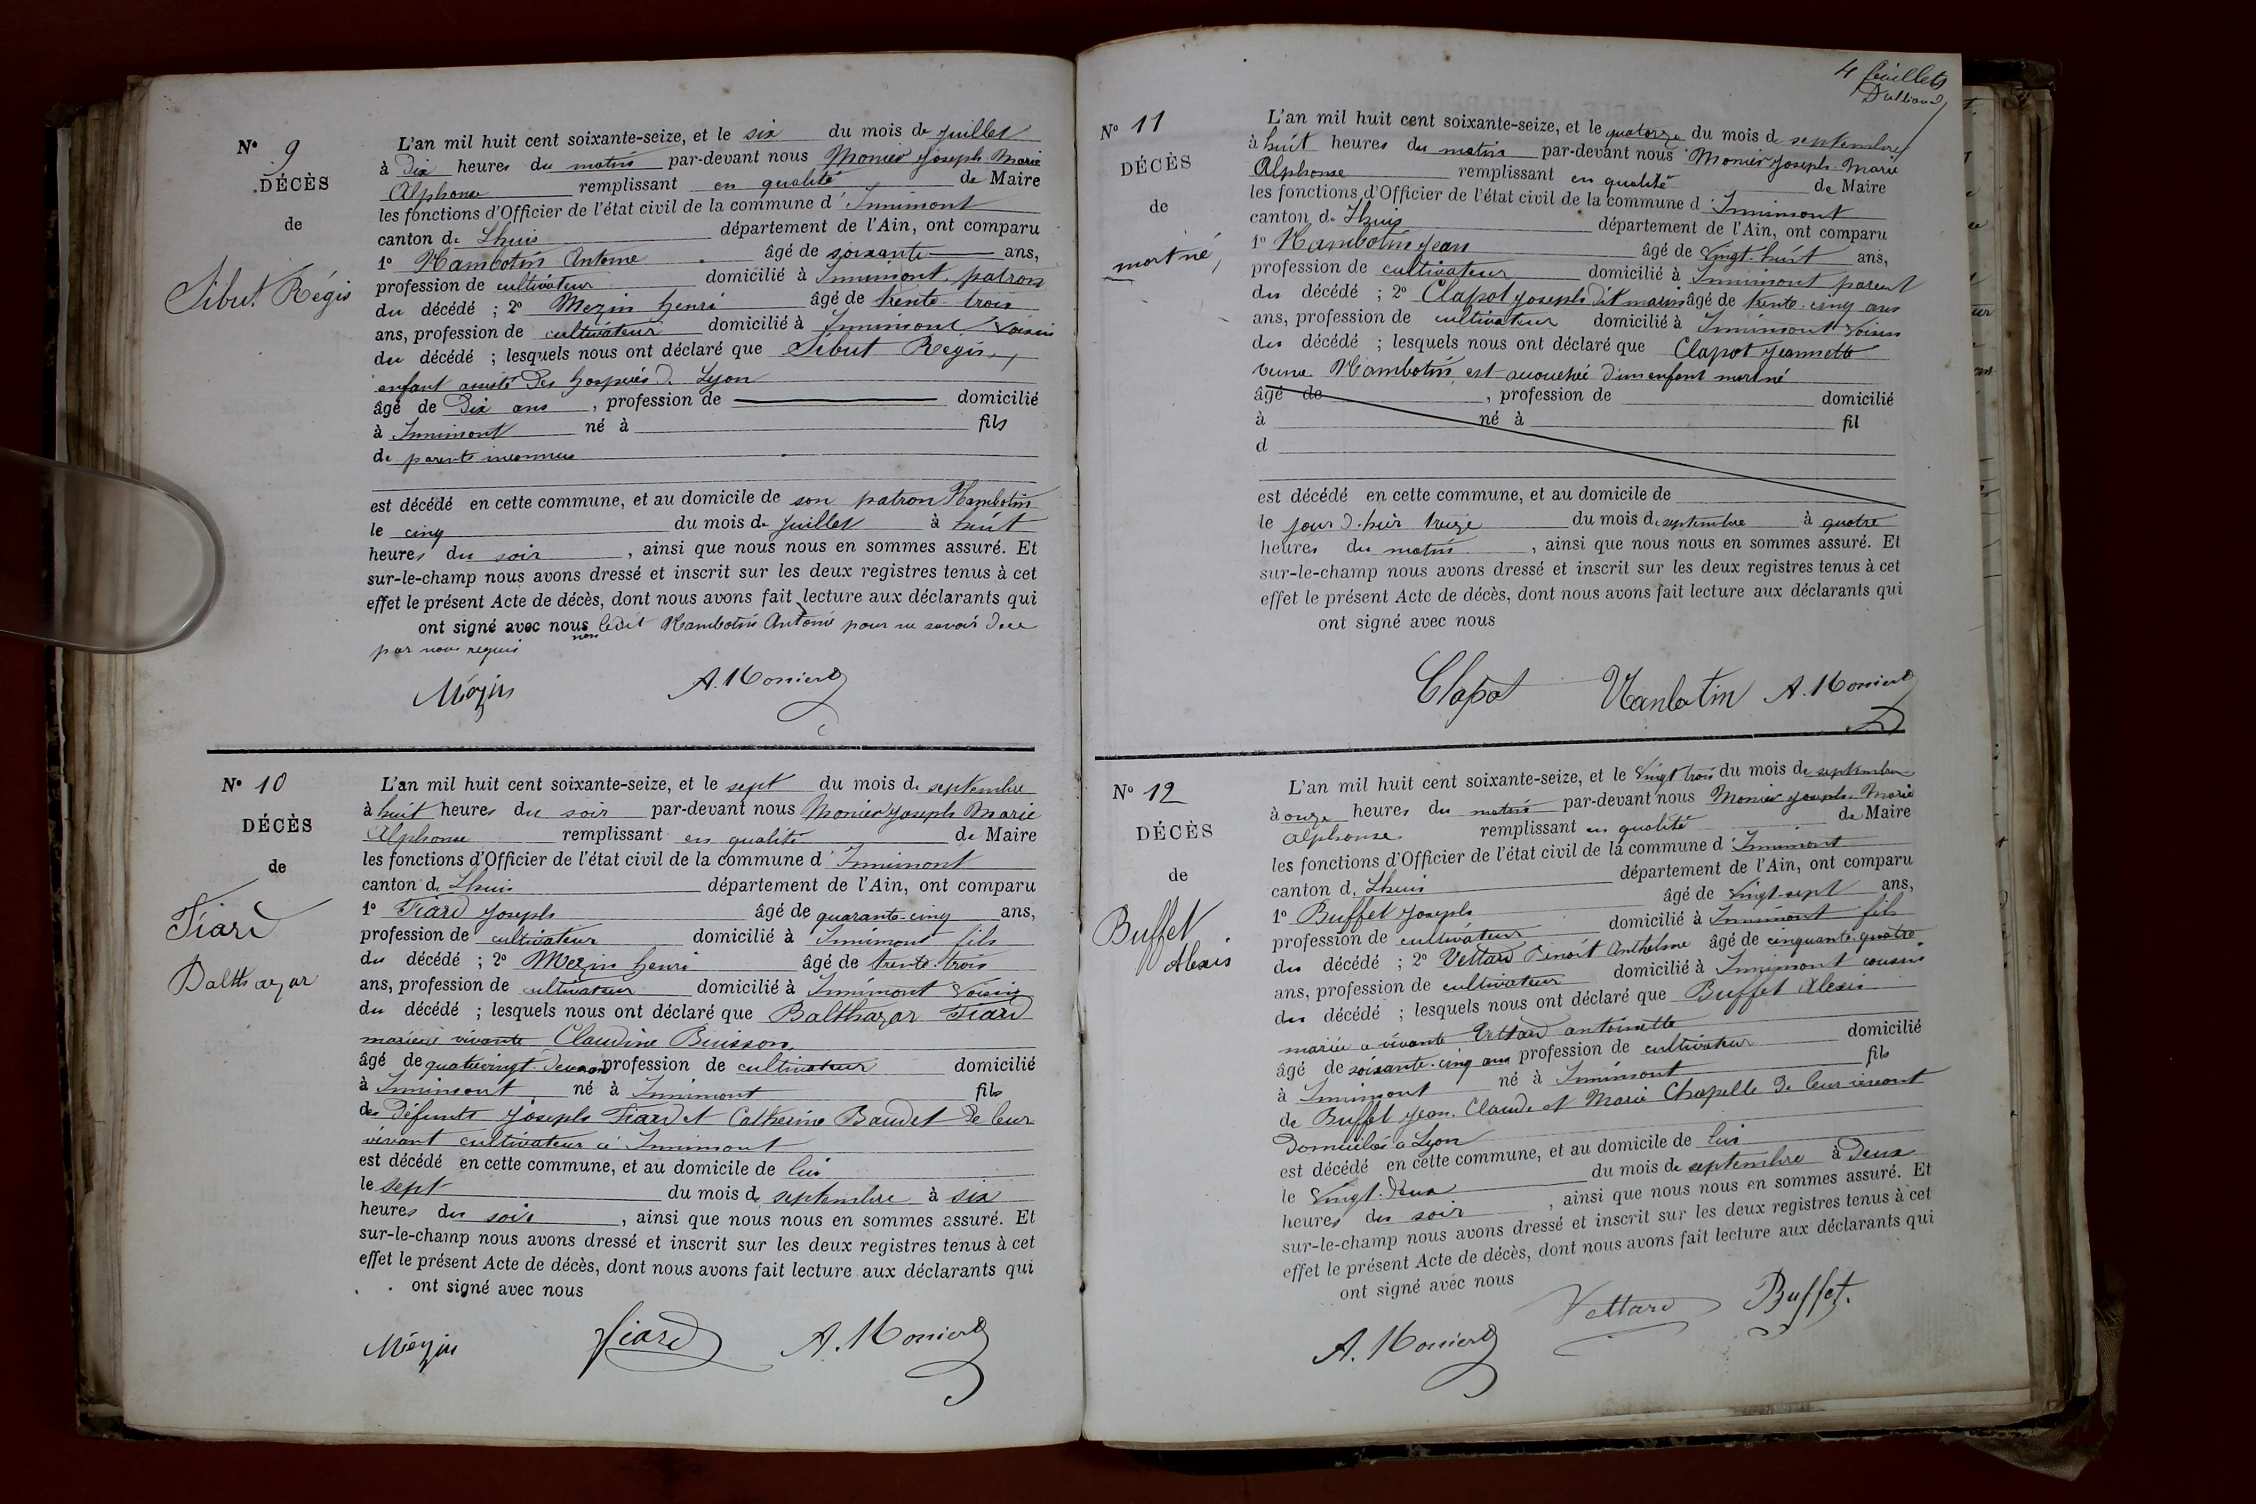 N° 9
DÉCÈS
de
Sibut Régis
L'an mil huit cent soixante-seize, et le six du mois de juillet
à dix heures du matin par-devant nous Monier Joseph Marie
Alphonse remplissant en qualité de Maire
les fonctions d'Officier de l'état civil de la commune d'Innimont
canton de Lhuis département de l'Ain, ont comparu
1° Hambotin Antoine âgé de soixante ans,
profession de cultivateur domicilié à Innimont, patron
du décédé ; 2° Mezin henri âgé de trente-trois
ans, profession de cultivateur domicilié à Innimont, voisin
du décédé ; lesquels nous ont déclaré que Sibut Régis,
enfant assisté des hospices de Lyon
âgé de dix ans, profession de domicilié
à Innimont né à fils
de parents inconnus
est décédé en cette commune, et au domicile de son patron Hambotin
le cinq du mois de juillet à huit
heures du soir, ainsi que nous nous en sommes assuré. Et
sur-le-champ nous avons dressé et inscrit sur les deux registres tenus à cet
effet le présent Acte de décès, dont nous avons fait lecture aux déclarants qui
ont signé avec nous non ledit Hambotin Antoine pour ne savoir de ce
par nous requis
Mézin A. Monier
N° 10
DÉCÈS
de
Fiard
Balthazar
L'an mil huit cent soixante-seize, et le sept du mois de septembre
à huit heures du soir par-devant nous Monier Joseph Marie
Alphonse remplissant en qualité de Maire
les fonctions d'Officier de l'état civil de la commune d'Innimont
canton de Lhuis département de l'Ain, ont comparu
1° Fiard Joseph âgé de quarante-cinq ans,
profession de cultivateur domicilié à Innimont fils
du décédé ; 2° Mezin henri âgé de trente-trois
ans, profession de cultivateur domicilié à Innimont voisin
du décédé ; lesquels nous ont déclaré que Balthazar Fiard
marié à vivante Claudine Buisson
âgé de quatrevingt deux ans profession de cultivateur domicilié
à Innimont né à Innimont fils
des défunts Joseph Fiard et Catherine Baudet de leur
vivant cultivateur à Innimont
est décédé en cette commune, et au domicile de lui
le sept du mois de septembre à six
heures du soir, ainsi que nous nous en sommes assuré. Et
sur-le-champ nous avons dressé et inscrit sur les deux registres tenus à cet
effet le présent Acte de décès, dont nous avons fait lecture aux déclarants qui
ont signé avec nous
Mézin Fiard A. Monier
4 feuillets
N° 11
DÉCÈS
de
mort né
L'an mil huit cent soixante-seize, et le quatorze du mois de septembre
à huit heures du matin par-devant nous Monier Joseph Marie
Alphonse remplissant en qualité de Maire
les fonctions d'Officier de l'état civil de la commune d'Innimont
canton de Lhuis département de l'Ain, ont comparu
1° Hambotin Jean âgé de vingt-huit ans,
profession de cultivateur domicilié à Innimont parent
du décédé ; 2° Clapot Joseph dit marin âgé de trente-cinq ans
ans, profession de cultivateur domicilié à Innimont voisin
du décédé ; lesquels nous ont déclaré que Clapot Jeannette
veuve Hambotin, est accouchée d'un enfant mort né
âgé de , profession de domicilié
à né à fil
d
est décédé en cette commune, et au domicile de
le jour d'hier treize du mois de septembre à quatre
heures du matin, ainsi que nous nous en sommes assuré. Et
sur-le-champ nous avons dressé et inscrit sur les deux registres tenus à cet
effet le présent Acte de décès, dont nous avons fait lecture aux déclarants qui
ont signé avec nous
Clapot Hanbotin A. Monier
N° 12
DÉCÈS
de
Buffet
Alexis
L'an mil huit cent soixante-seize, et le vingt trois du mois de septembre
à onze heures du matin par-devant nous Monier Joseph Marie
Alphonse remplissant en qualité de Maire
les fonctions d'Officier de l'état civil de la commune d'Innimont
canton de Lhuis département de l'Ain, ont comparu
1° Buffet Joseph âgé de vingt-sept ans,
profession de cultivateur domicilié à Innimont fils
du décédé ; 2° Vettard Benoit Anthelme âgé de cinquante-quatre
ans, profession de cultivateur domicilié à Innimont cousin
du décédé ; lesquels nous ont déclaré que Buffet Alexis
mariée a vivante Vettard antoinette
âgé de soixante-cinq ans profession de cultivateur domicilié
à Innimont né à Innimont fils
de Buffet Jean Claude et Marie Chapelle de leur vivant
domiciliés à Lyon
est décédé en cette commune, et au domicile de lui
le vingt-deux du mois de septembre à deux
heures du soir, ainsi que nous nous en sommes assuré. Et
sur-le-champ nous avons dressé et inscrit sur les deux registres tenus à cet
effet le présent Acte de décès, dont nous avons fait lecture aux déclarants qui
ont signé avec nous
A. Monier Vettard Buffet.